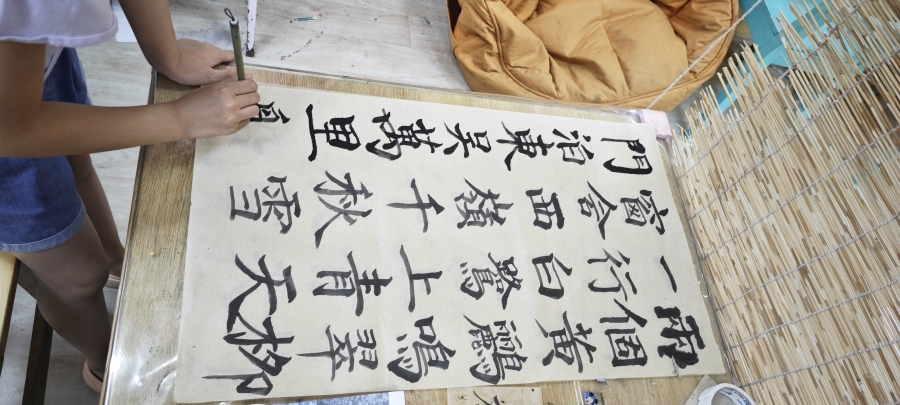 兩個黃鸝鳴翠柳
一行白鷺上青天
窗含西嶺千秋雪
門泊東吳萬里